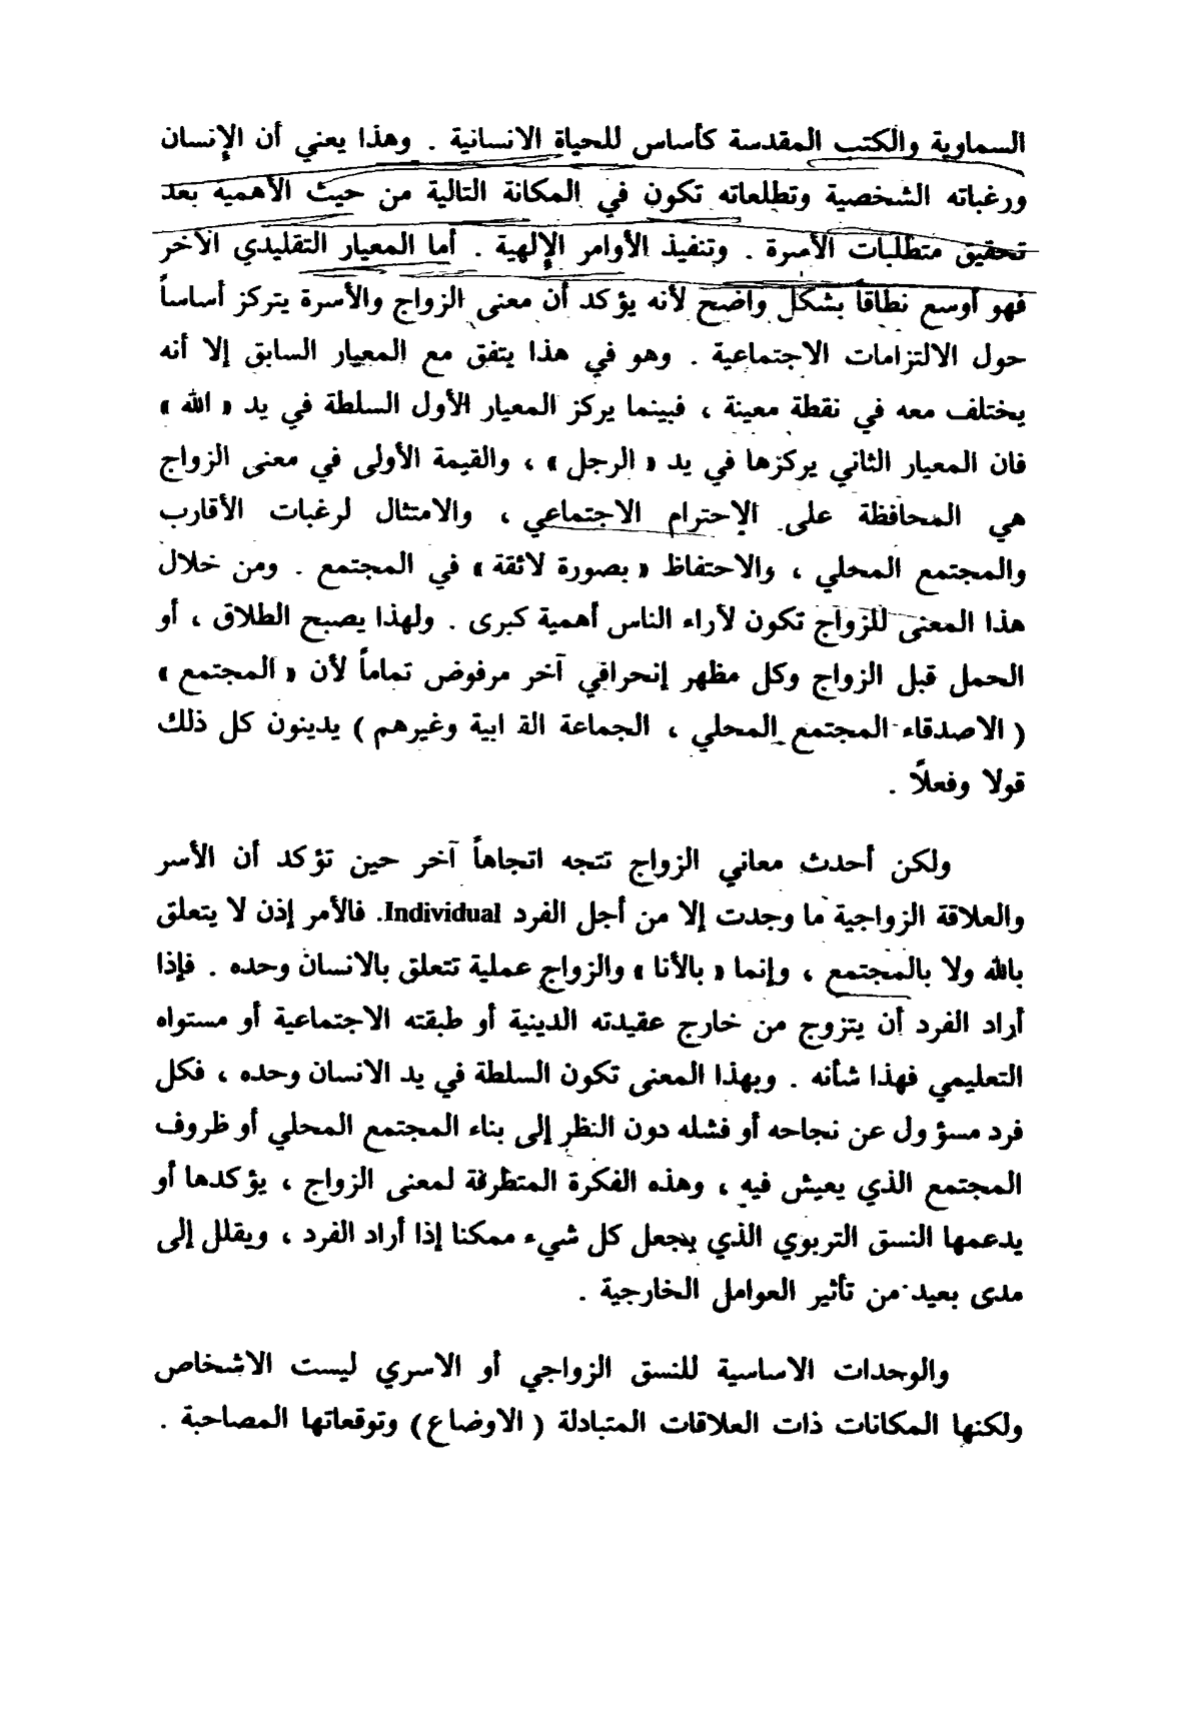 السماوية والكتب المقدسة كأساس للحياة الانسانية . وهذا يعني أن الإنسان
ورغباته الشخصية وتطلعاته تكون في المكانة التالية من حيث الأهمية بعد
تحقيق متطلبات الأسرة . وتنفيذ الأوامر الإلهية . أما المعيار التقليدي الآخر
فهو أوسع نطاقاً بشكل واضح لأنه يؤكد أن معنى الزواج والأسرة يتركز أساساً
حول الالتزامات الاجتماعية . وهو في هذا يتفق مع المعيار السابق إلا أنه
يختلف معه في نقطة معينة ، فبينما يركز المعيار الأول السلطة في يد « الله »
فان المعيار الثاني يركزها في يد « الرجل » ، والقيمة الأولى في معنى الزواج
هي المحافظة على الإحترام الاجتماعي ، والامتثال لرغبات الأقارب
والمجتمع المحلي ، والاحتفاظ « بصورة لائقة » في المجتمع . ومن خلال
هذا المعنى للزواج تكون لآراء الناس أهمية كبرى . ولهذا يصبح الطلاق ، أو
الحمل قبل الزواج وكل مظهر إنحرافي آخر مرفوض تماماً لأن « المجتمع »
( الاصدقاء المجتمع المحلي ، الجماعة الق ابية وغيرهم ) يدينون كل ذلك
قولا وفعلاً .
ولكن أحدث معاني الزواج تتجه اتجاهاً آخر حين تؤكد أن الأسر
والعلاقة الزواجية ما وجدت إلا من أجل الفرد Individual. فالأمر إذن لا يتعلق
بالله ولا بالمجتمع ، وإنما « بالأنا » والزواج عملية تتعلق بالانسان وحده . فإذا
أراد الفرد أن يتزوج من خارج عقيدته الدينية أو طبقته الاجتماعية أو مستواه
التعليمي فهذا شأنه . وبهذا المعنى تكون السلطة في يد الانسان وحده ، فكل
فرد مسؤول عن نجاحه أو فشله دون النظر إلى بناء المجتمع المحلي أو ظروف
المجتمع الذي يعيش فيه ، وهذه الفكرة المتطرفة لمعنى الزواج ، يؤكدها أو
يدعمها النسق التربوي الذي يجعل كل شيء ممكنا إذا أراد الفرد ، ويقلل إلى
مدى بعيد من تأثير العوامل الخارجية .
والوحدات الاساسية للنسق الزواجي أو الاسري ليست الاشخاص
ولكنها المكانات ذات العلاقات المتبادلة ( الاوضاع ) وتوقعاتها المصاحبة .